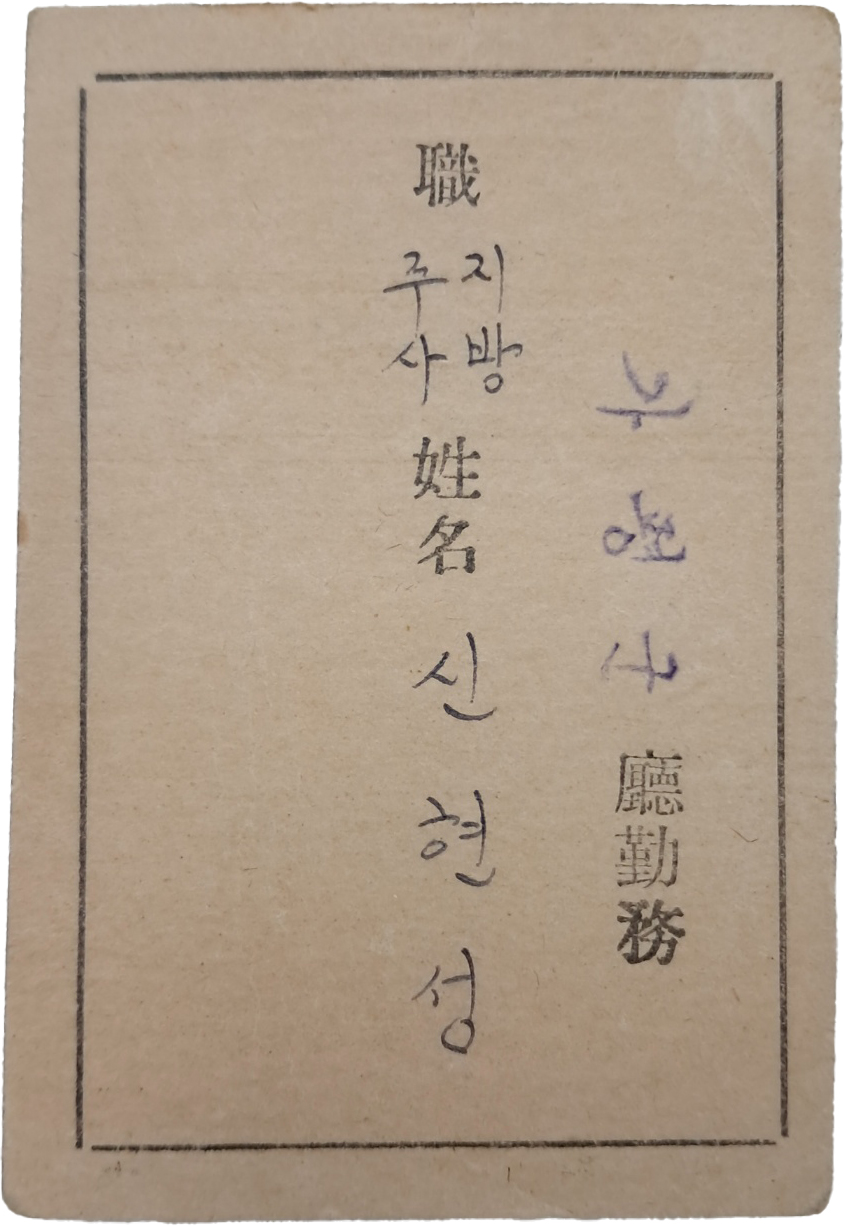 廳勤務
職 지방주사 姓名 신현성